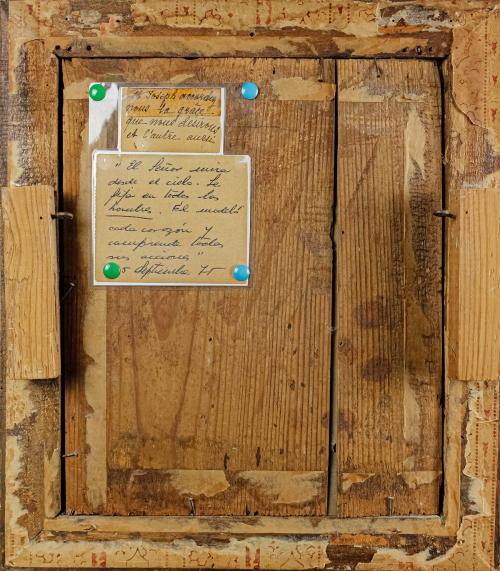 St Joseph accordez
nous la grâce
que nous désirons
et l'autre aussi
"El Señor mira
desde el cielo. Se
fija en todos los
hombres. El modeló
cada corazón y
comprende todas
sus acciones"
5 Septiembre 75